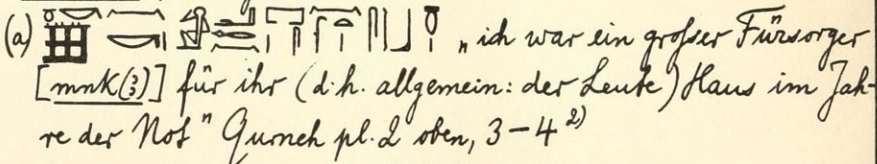 (a) „ich war ein großer Fürsorger
[mnK(?)] für ihr (d.h. allgemein: der Leute) Haus im Jah-
re der Not" Qurneh pl. 2 oben, 3-4 2)